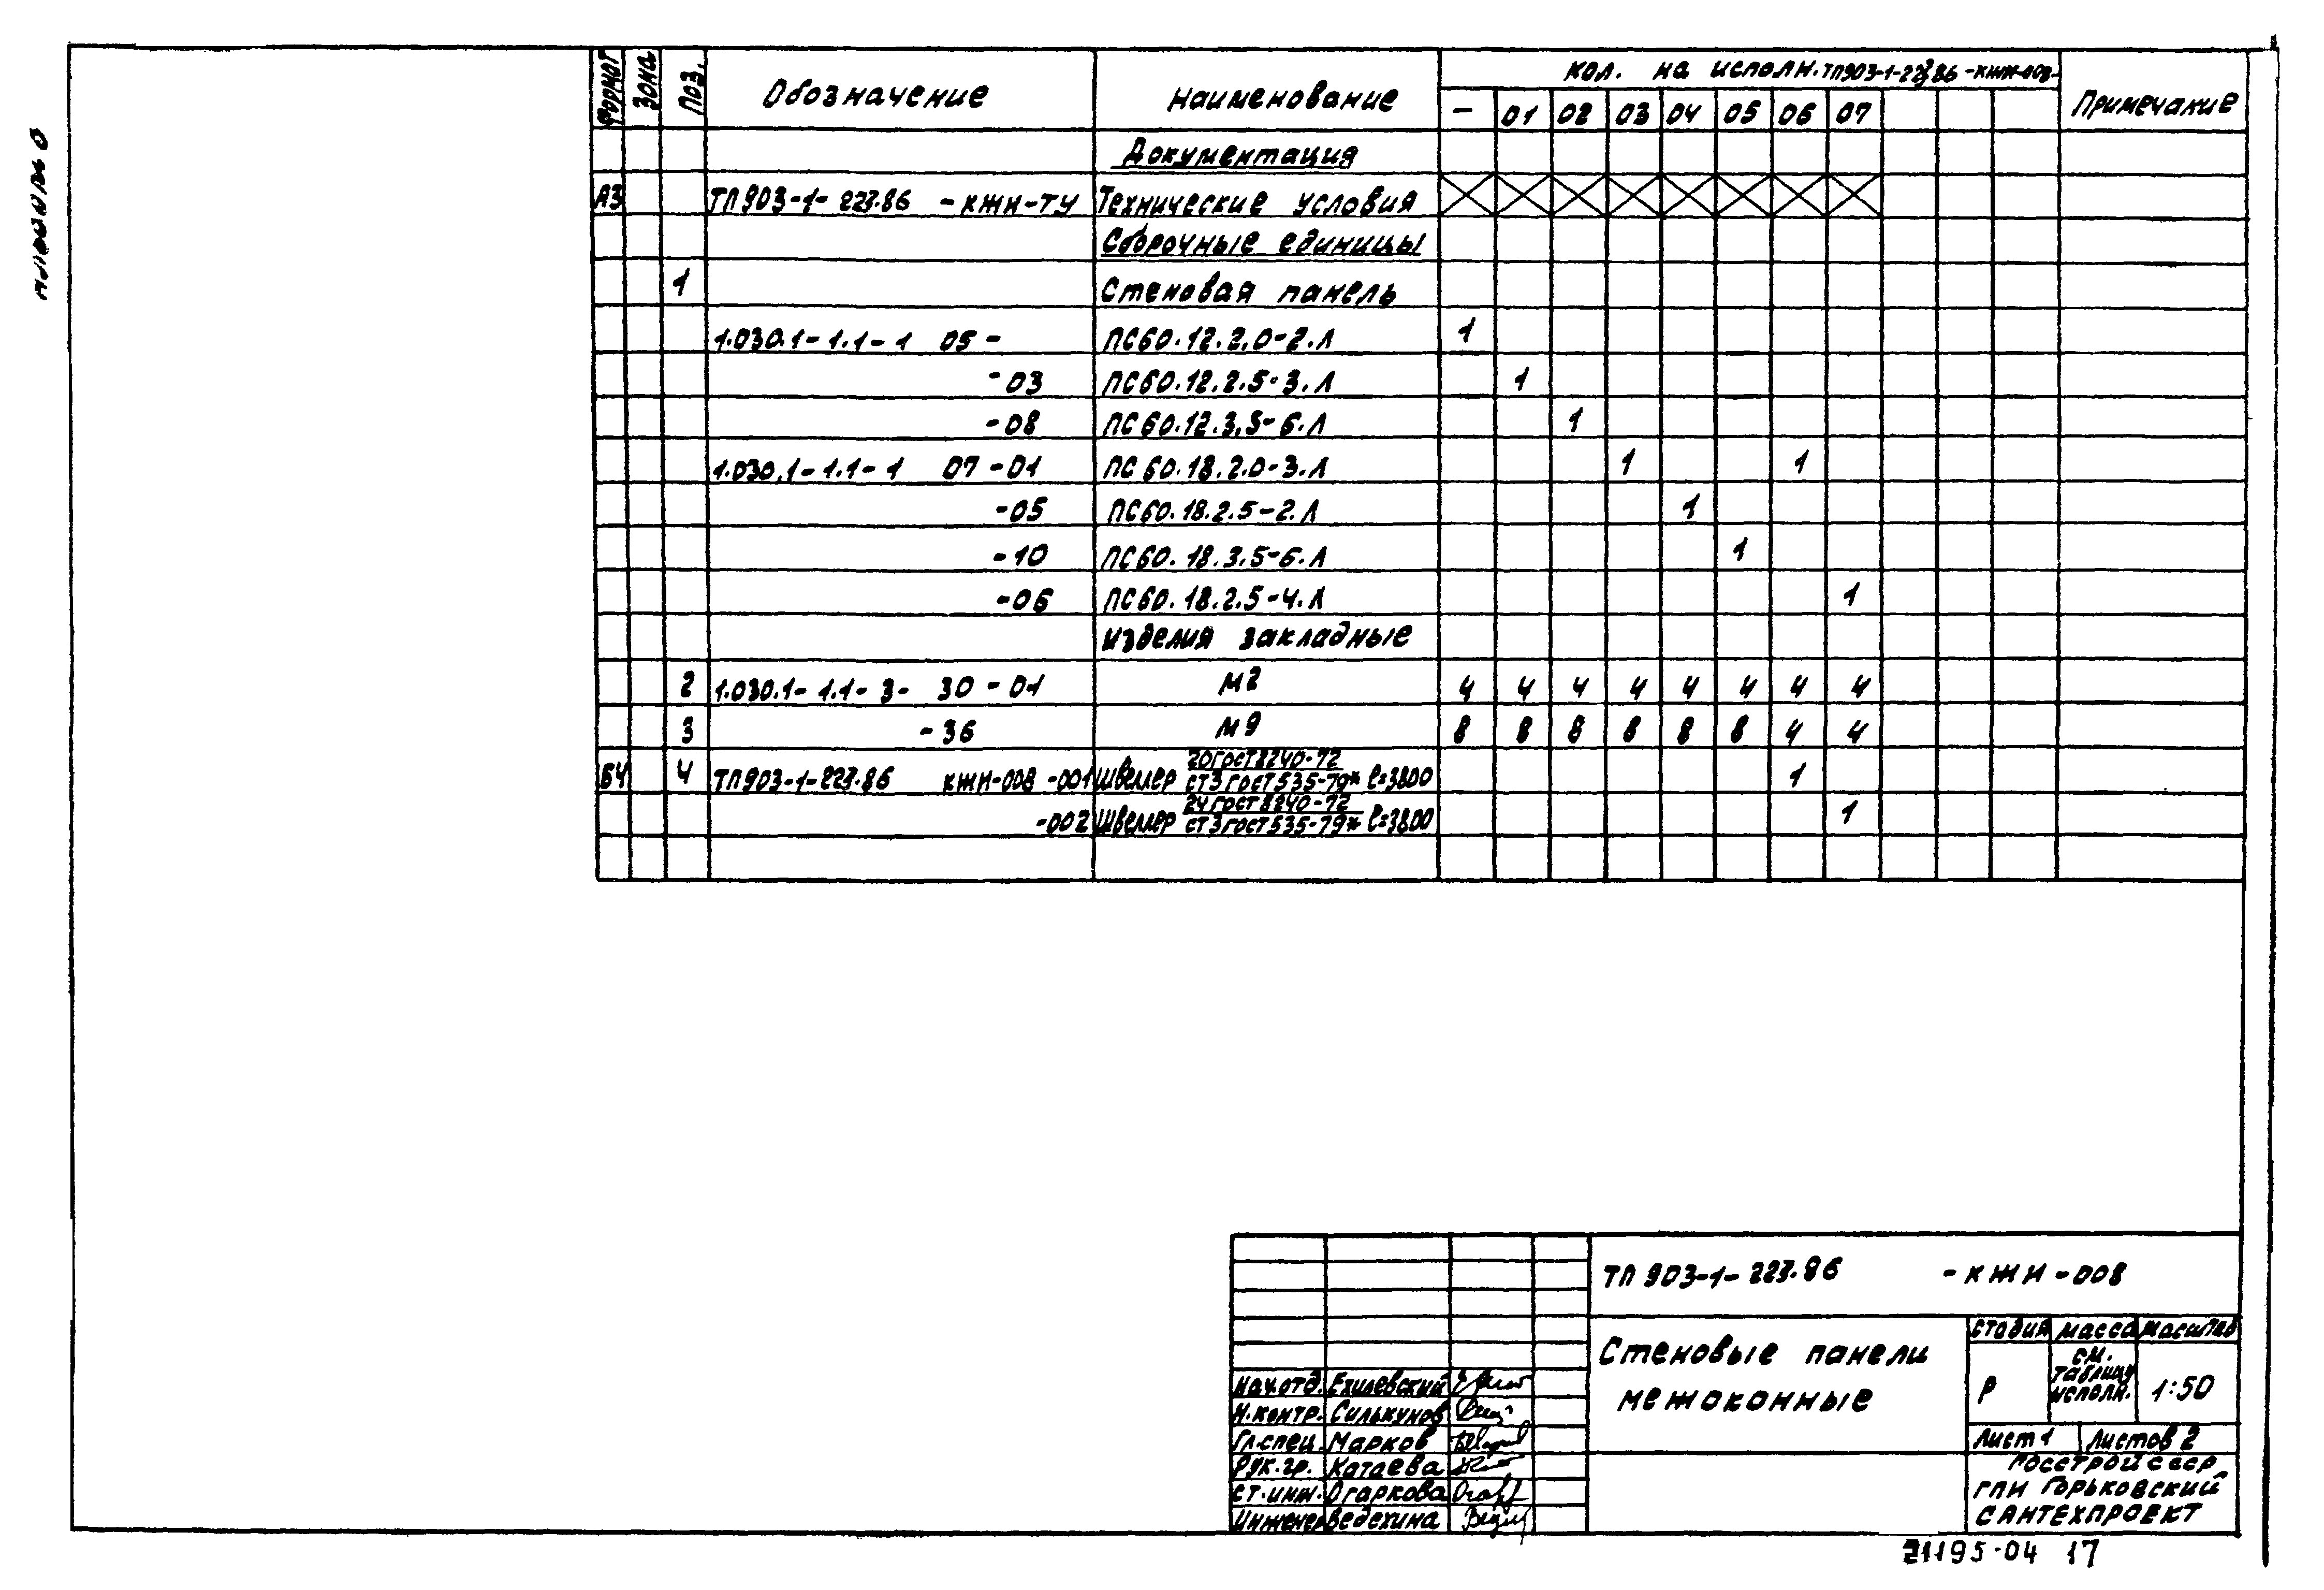 Формат Зона Поз. Обозначение Наименование кол. на исполн. ТП903-1-223.86 -КЖИ-008- Примечание
– 01 02 03 04 05 06 07
Документация
А3 ТП903-1-223.86 -КЖИ-ТУ Технические условия
Сборочные единицы
1 Стеновая панель
1.030.1-1.1-1 05 - ПС60.12.2.0-2.Л 1
-03 ПС60.12.2.5-3.Л 1
-08 ПС60.12.3.5-6.Л 1
1.030.1-1.1-1 07-01 ПС60.18.2.0-3.Л 1 1
-05 ПС60.18.2.5-2.Л 1
-10 ПС60.18.3.5-6.Л 1
-06 ПС60.18.2.5-4.Л 1
Изделия закладные
2 1.030.1-1.1-3- 30-01 М2 4 4 4 4 4 4 4 4
3 -36 М9 8 8 8 8 8 8 4 4
БЧ 4 ТП903-1-223.86 КЖИ-008 -001 Швеллер 20 ГОСТ 8240-72 / Ст3 ГОСТ 535-79* l=3800 1
-002 Швеллер 24 ГОСТ 8240-72 / Ст3 ГОСТ 535-79* l=3800 1
ТП 903-1-223.86 -КЖИ-008
Стеновые панели
межоконные
Стадия Масса Масштаб
Р см. таблицу исполн. 1:50
Лист 1 Листов 2
Госстрой СССР
ГПИ Горьковский
Сантехпроект
Нач.отд. Ехилевский
Н.контр. Силькунов
Гл.спец. Марков
Рук.гр. Катаева
Ст.инж. Огаркова
Инженер Ведехина
21195-04 17